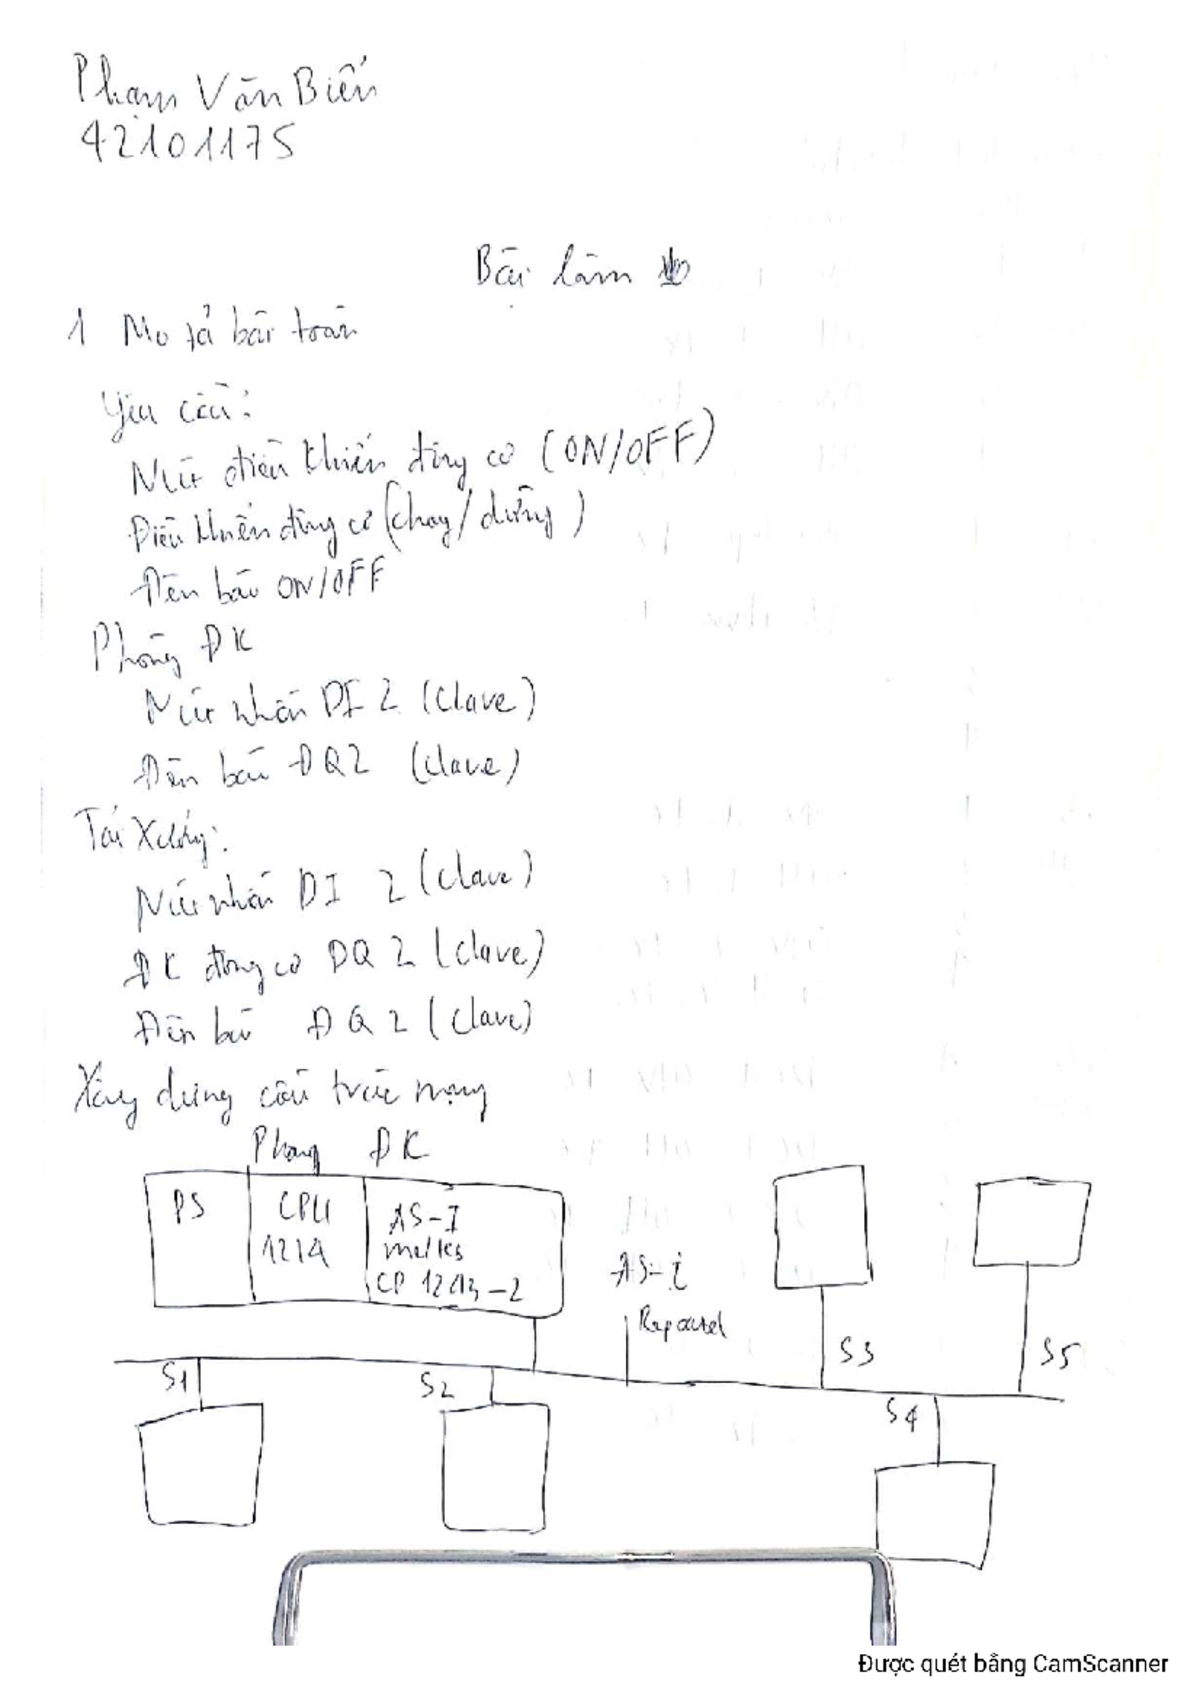 Phạm Văn Biến
42101175
Bài làm
1 Mô tả bài toán
Yêu cầu:
Nút điều khiển động cơ (ON/OFF)
Điều khiển động cơ (chạy/dừng)
Đèn báo ON/OFF
Phòng ĐK
Nút nhấn DI 2 (Clave)
Đèn báo ĐQ2 (Clave)
Tái Xưởng:
Nút nhấn DI 2 (Clave)
ĐK động cơ DQ 2 (Clave)
Đèn báo ĐQ 2 (Clave)
Xây dựng cấu trúc mạng
Phòng ĐK
PS CPU 1214 AS-I CP 1243-2
AS-i
S3
S5
S1
S2
S4
Được quét bằng CamScanner